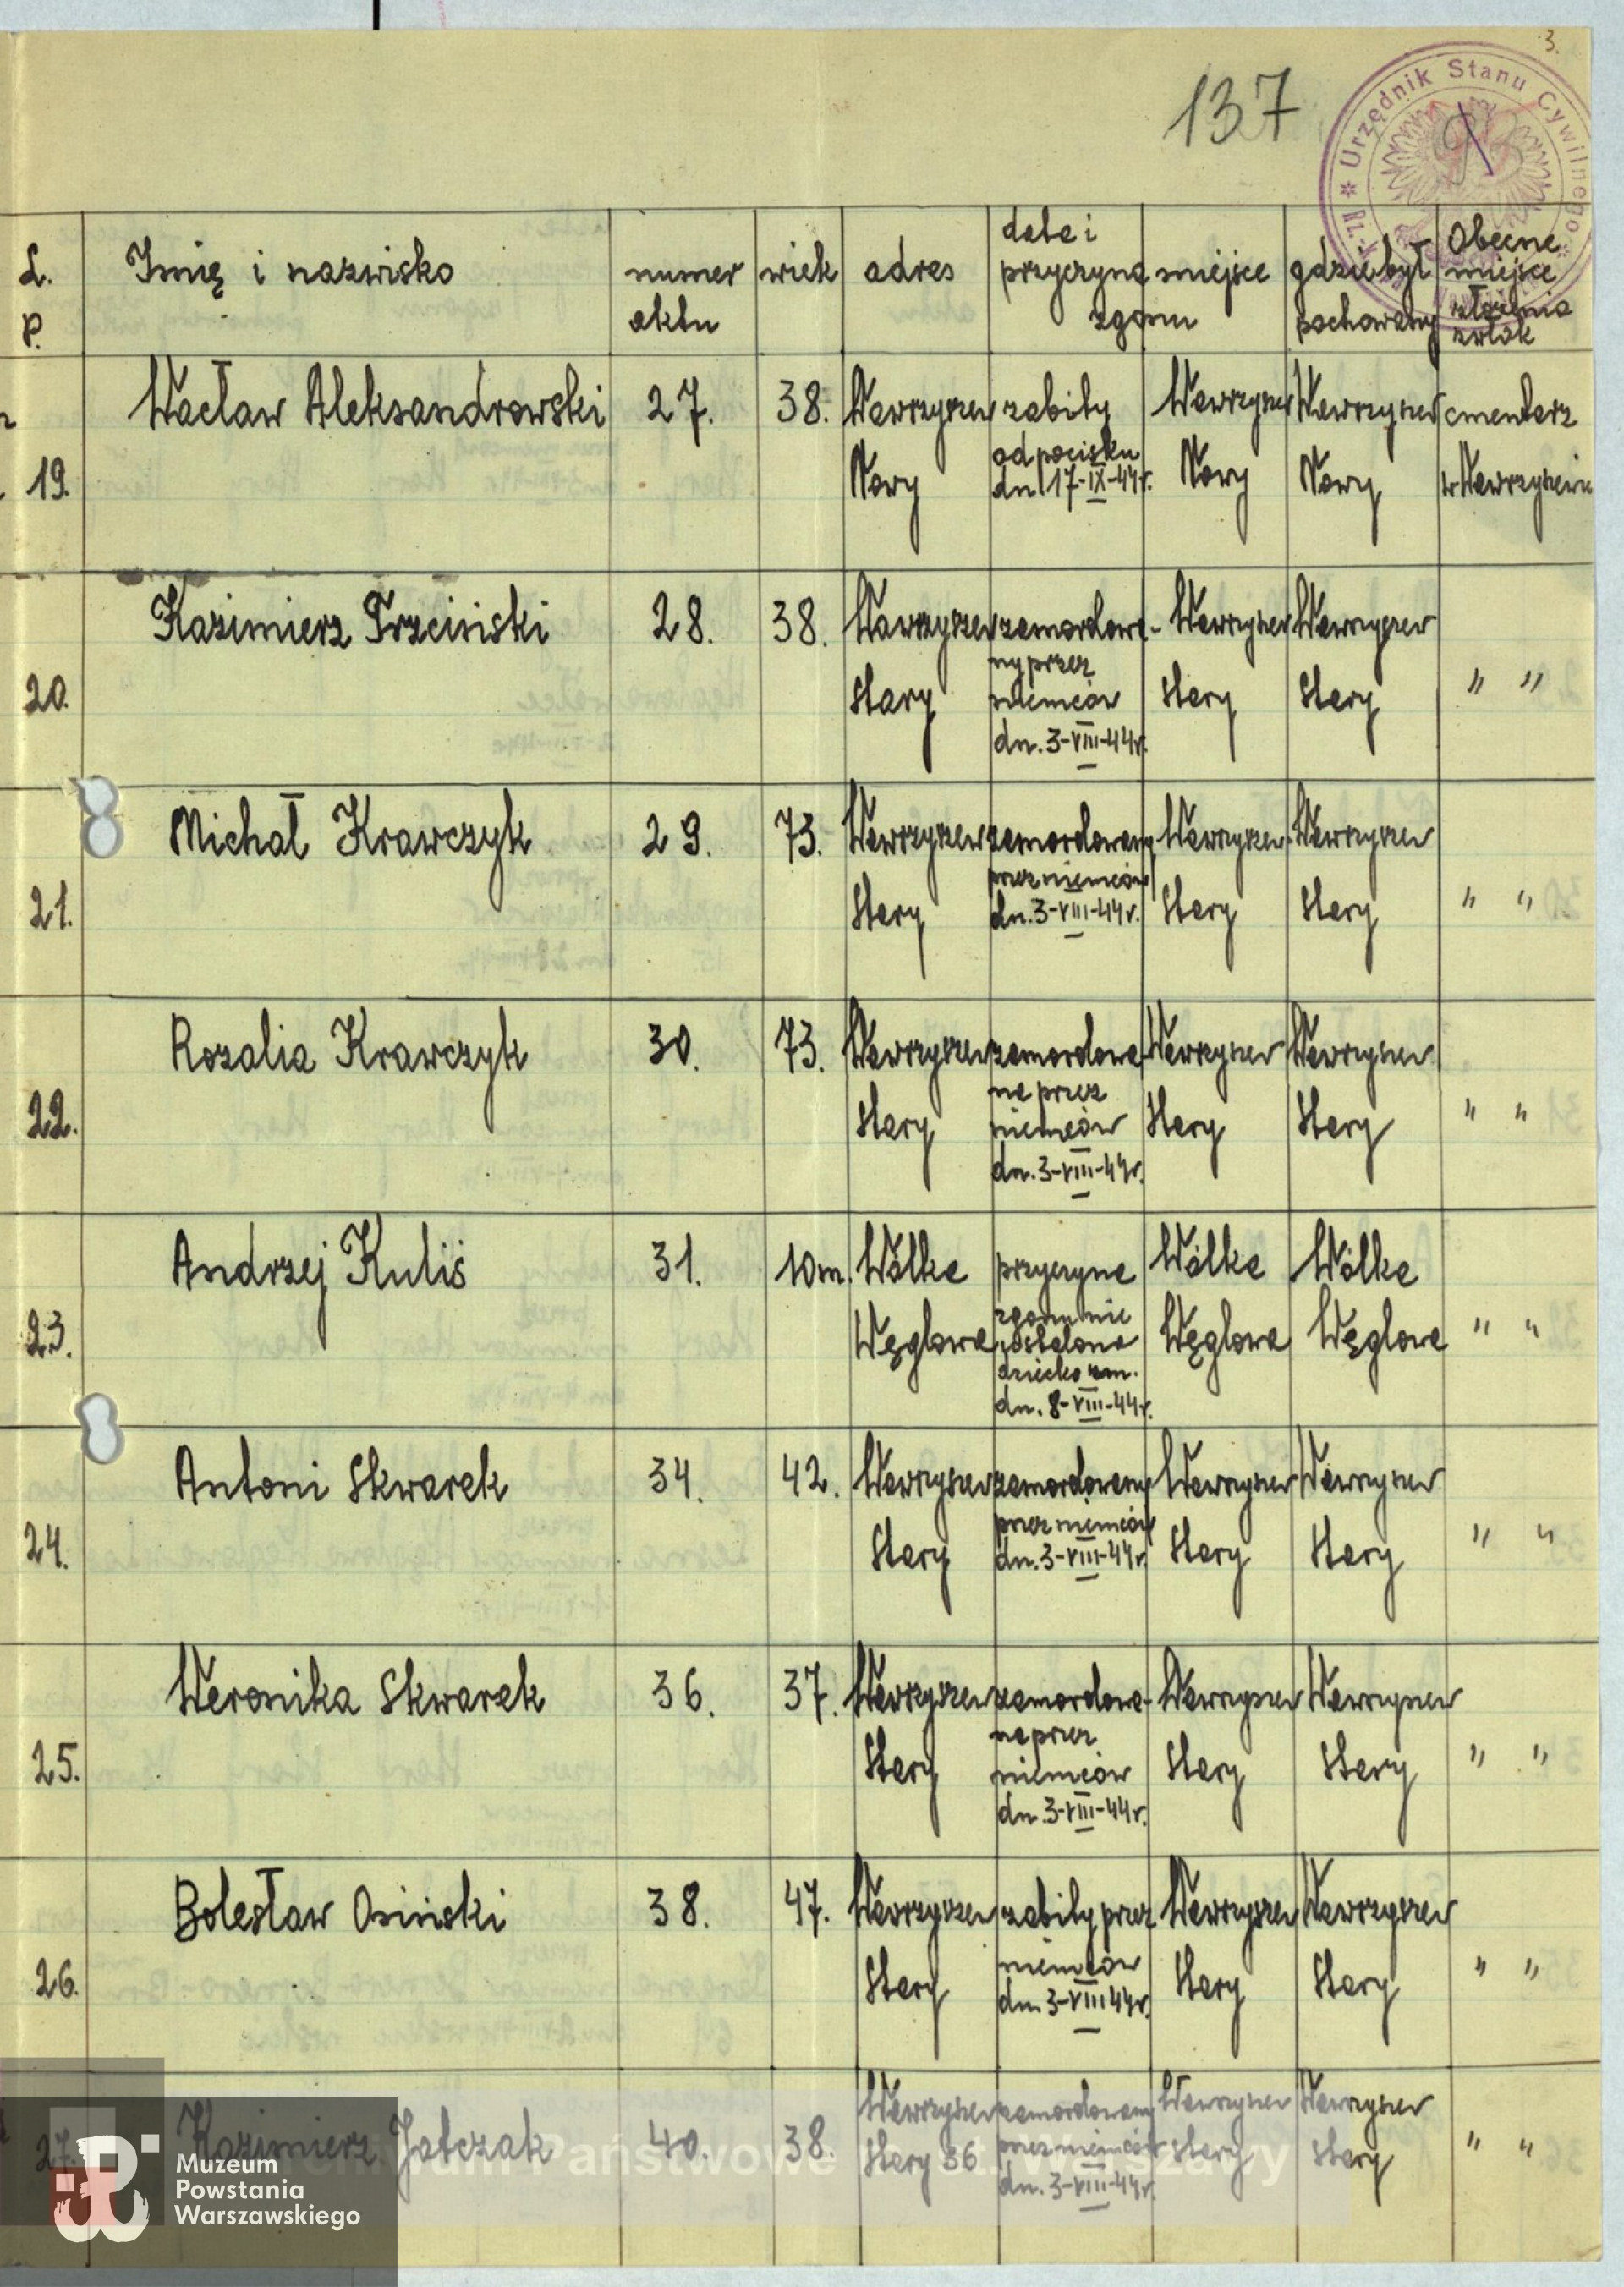 3.
137
Urzędnik Stanu Cywilnego
L. P.
Imię i nazwisko
numer aktu
wiek
adres
data i przyczyna zgonu
miejsce
gdzie był pochowany
Obecne miejsce złożenia zwłok
19. Wacław Aleksandrowski 27. 38. Wawrzyszew Nowy zabity od pocisku dn 17-IX-44r. Wawrzyszew Nowy Wawrzyszew Nowy cmentarz w Wawrzyszewie
20. Kazimierz Trzciński 28. 38. Wawrzyszew Stary zamordowany przez niemców dn. 3-VIII-44r. Wawrzyszew Stary Wawrzyszew Stary " "
21. Michał Krawczyk 29. 73. Wawrzyszew Stary zamordowany przez niemców dn. 3-VIII-44r. Wawrzyszew Stary Wawrzyszew Stary " "
22. Rozalia Krawczyk 30. 73. Wawrzyszew Stary zamordowana przez niemców dn. 3-VIII-44r. Wawrzyszew Stary Wawrzyszew Stary " "
23. Andrzej Kuliś 31. 10m. Wólka Węglowa przyczyna zgonu nie ustalona dziecko zm. dn. 8-VIII-44r. Wólka Węglowa Wólka Węglowa " "
24. Antoni Skwarek 34. 42. Wawrzyszew Stary zamordowany przez niemców dn. 3-VIII-44r. Wawrzyszew Stary Wawrzyszew Stary " "
25. Weronika Skwarek 36. 37. Wawrzyszew Stary zamordowana przez niemców dn. 3-VIII-44r. Wawrzyszew Stary Wawrzyszew Stary " "
26. Bolesław Osiński 38. 47. Wawrzyszew Stary zabity przez niemców dn 3-VIII 44r. Wawrzyszew Stary Wawrzyszew Stary " "
27. Kazimierz Jatczak 40. 38. Wawrzyszew Stary 36 zamordowany przez niemców dn. 3-VIII-44r. Wawrzyszew Stary Wawrzyszew Stary " "
Muzeum
Powstania
Warszawskiego
Państwowe
st. Warszawy